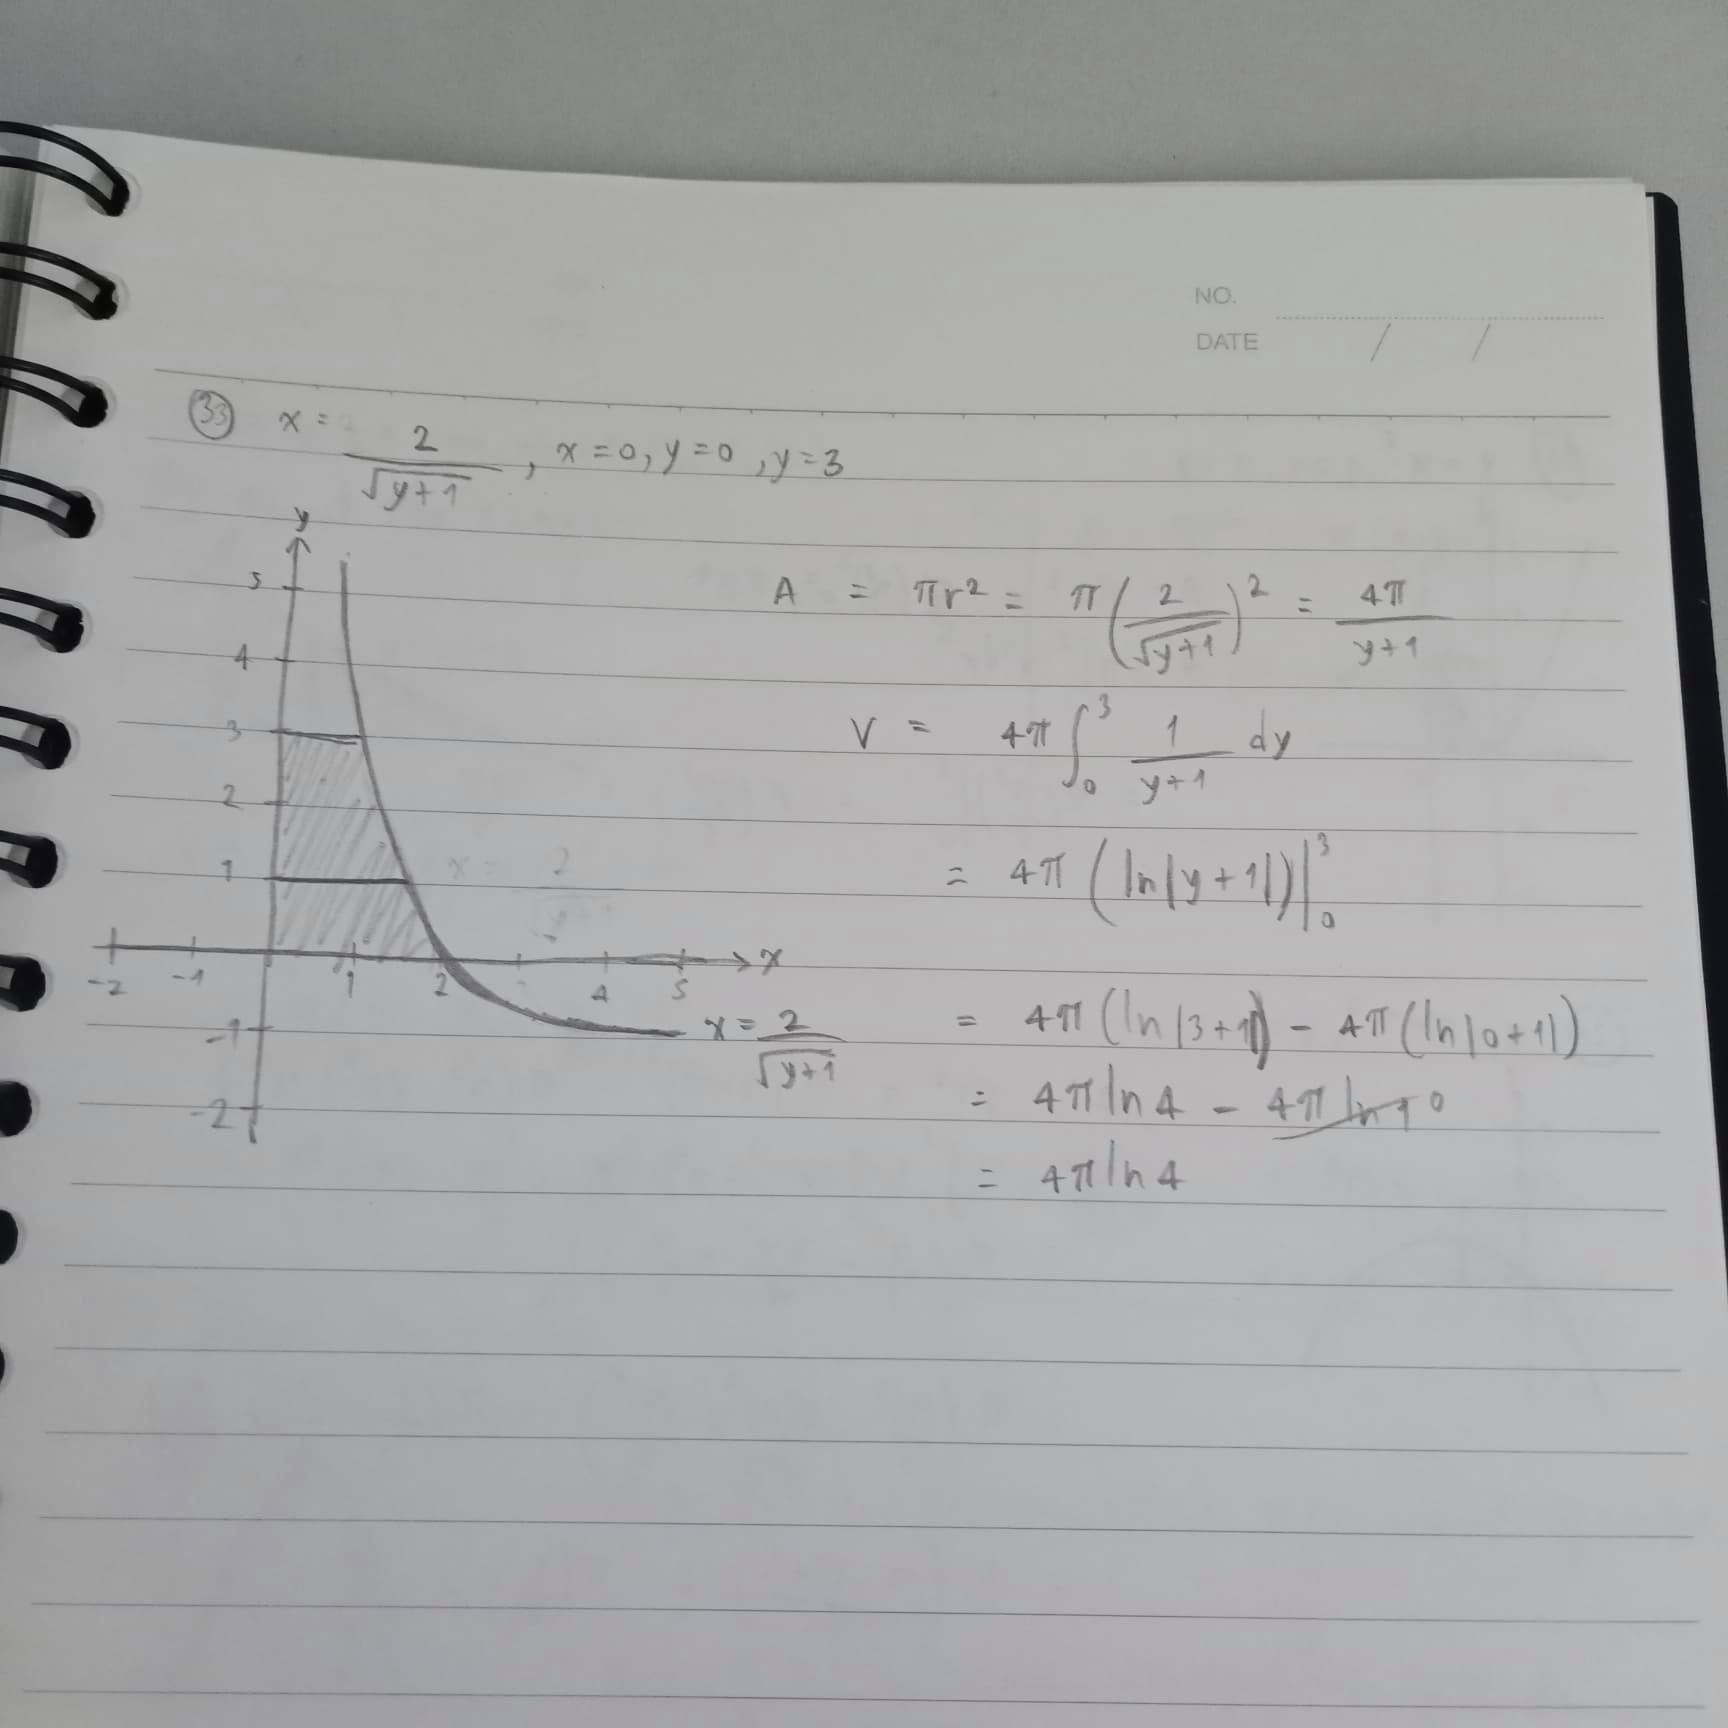 NO.
DATE / /
33 x = 2/√(y+1) , x=0, y=0, y=3
y
5
4
3
2
1
-2 -1 1 2 4 5 x
-1
-2
x = 2/√(y+1)
A = πr² = π(2/√(y+1))² = 4π/(y+1)
V = 4π ∫₀³ 1/(y+1) dy
= 4π (ln|y+1|)|₀³
= 4π (ln|3+1|) - 4π (ln|0+1|)
= 4π ln 4 - 4π ln 1 0
= 4π ln 4